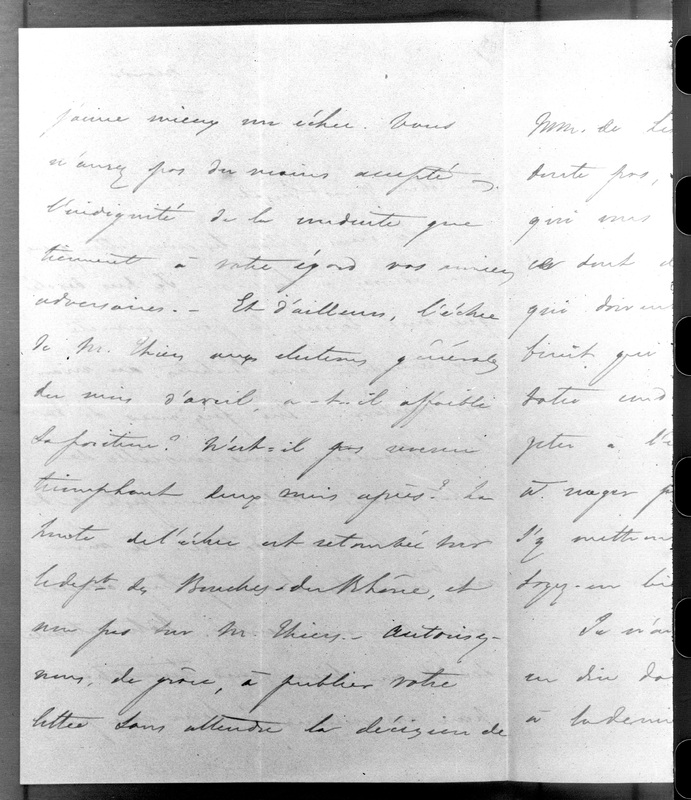 j'aime mieux un échec. Vous
n'aurez pas du moins accepté
l'indignité de la conduite que
tiennent à votre égard vos anciens
adversaires. – Et d'ailleurs, l'échec
de M. Thiers aux élections générales
du mois d'avril, a-t-il affaibli
sa position? N'est-il pas revenu
triomphant deux mois après? La
honte de l'échec est retombée sur
le dépt. des Bouches-du-Rhône, et
non pas sur M. Thiers. – Autorisez-
nous, de grâce, à publier votre
lettre sans attendre la décision de
MM. de
doute pas,
qui vous
dont
qui doivent
bruit que
votre
pter à l'
à nager
s'y mettront
Je n'
un dieu
à la derni